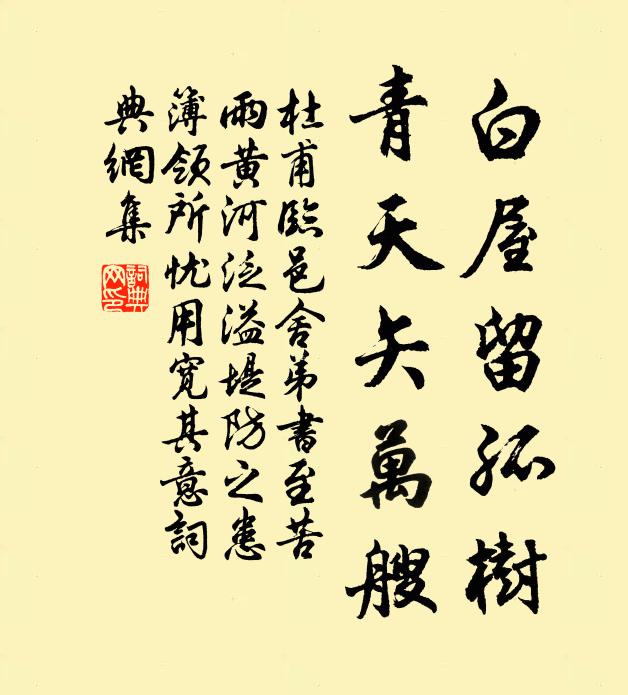 白屋留孤樹
青天失萬艘
杜甫臨邑舍弟書至苦
雨黄河泛溢堤防之患
簿領所忧用寬其意詞
典網集
詞典
网印